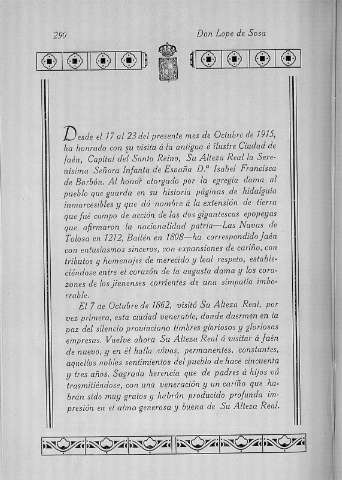 290
Don Lope de Sosa
Desde el 17 al 23 del presente mes de Octubre de 1915,
ha honrado con su visita á la antigua é ilustre Ciudad de
Jaén, Capital del Santo Reino, Su Alteza Real la Sere-
nísima Señora Infanta de España D.ª Isabel Francisca
de Borbón. Al honor otorgado por la egregia dama al
pueblo que guarda en su historia páginas de hidalguía
inmarcesibles y que dó nombre á la extensión de tierra
que fué campo de acción de las dos gigantescas epopeyas
que afirmaron la nacionalidad patria—Las Navas de
Tolosa en 1212, Bailén en 1808—ha correspondido Jaén
con entusiasmos sinceros, con expansiones de cariño, con
tributos y homenajes de merecido y leal respeto, estable-
ciéndose entre el corazón de la augusta dama y los cora-
zones de los jienenses corrientes de una simpatía imbo-
rrable.
El 7 de Octubre de 1862, visitó Su Alteza Real, por
vez primera, esta ciudad venerable, donde duermen en la
paz del silencio provinciano timbres gloriosos y gloriosas
empresas. Vuelve ahora Su Alteza Real á visitar á Jaén
de nuevo, y en él halla vivos, permanentes, constantes,
aquellos nobles sentimientos del pueblo de hace cincuenta
y tres años. Sagrada herencia que de padres á hijos vá
trasmitiéndose, con una veneración y un cariño que ha-
brán sido muy gratos y habrán producido profunda im-
presión en el alma generosa y buena de Su Alteza Real.